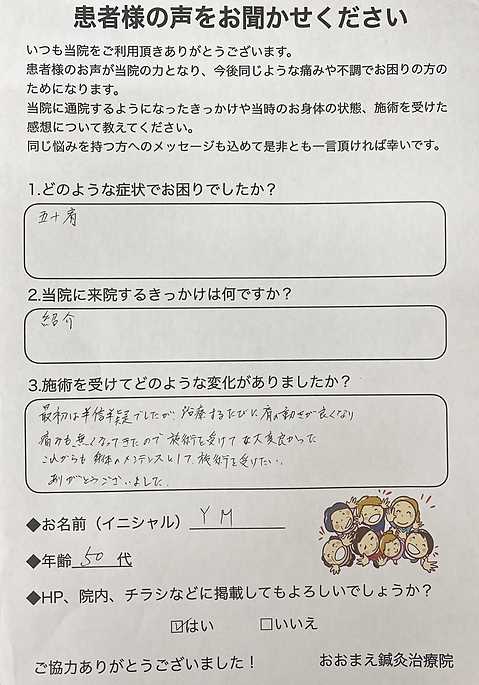 患者様の声をお聞かせください
いつも当院をご利用頂きありがとうございます。
患者様のお声が当院の力となり、今後同じような痛みや不調でお困りの方の
ためになります。
当院に通院するようになったきっかけや当時のお身体の状態、施術を受けた
感想について教えてください。
同じ悩みを持つ方へのメッセージも込めて是非とも一言頂ければ幸いです。
1.どのような症状でお困りでしたか？
五十肩
2.当院に来院するきっかけは何ですか？
紹介
3.施術を受けてどのような変化がありましたか？
最初は半信半疑でしたが 治療するたびに肩の動きが良くなり
痛みも無くなってきたので施術を受けて大変良かった
これからも身体のメンテナンスとして施術を受けたい。
ありがとうございました
◆お名前（イニシャル） Y M
◆年齢 50 代
◆HP、院内、チラシなどに掲載してもよろしいでしょうか？
☑はい □いいえ
ご協力ありがとうございました！
おおまえ鍼灸治療院